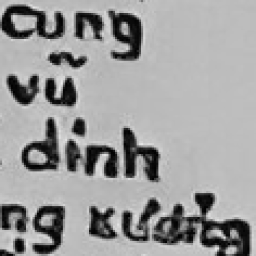 cung
vũ
dinh
ng xưởng